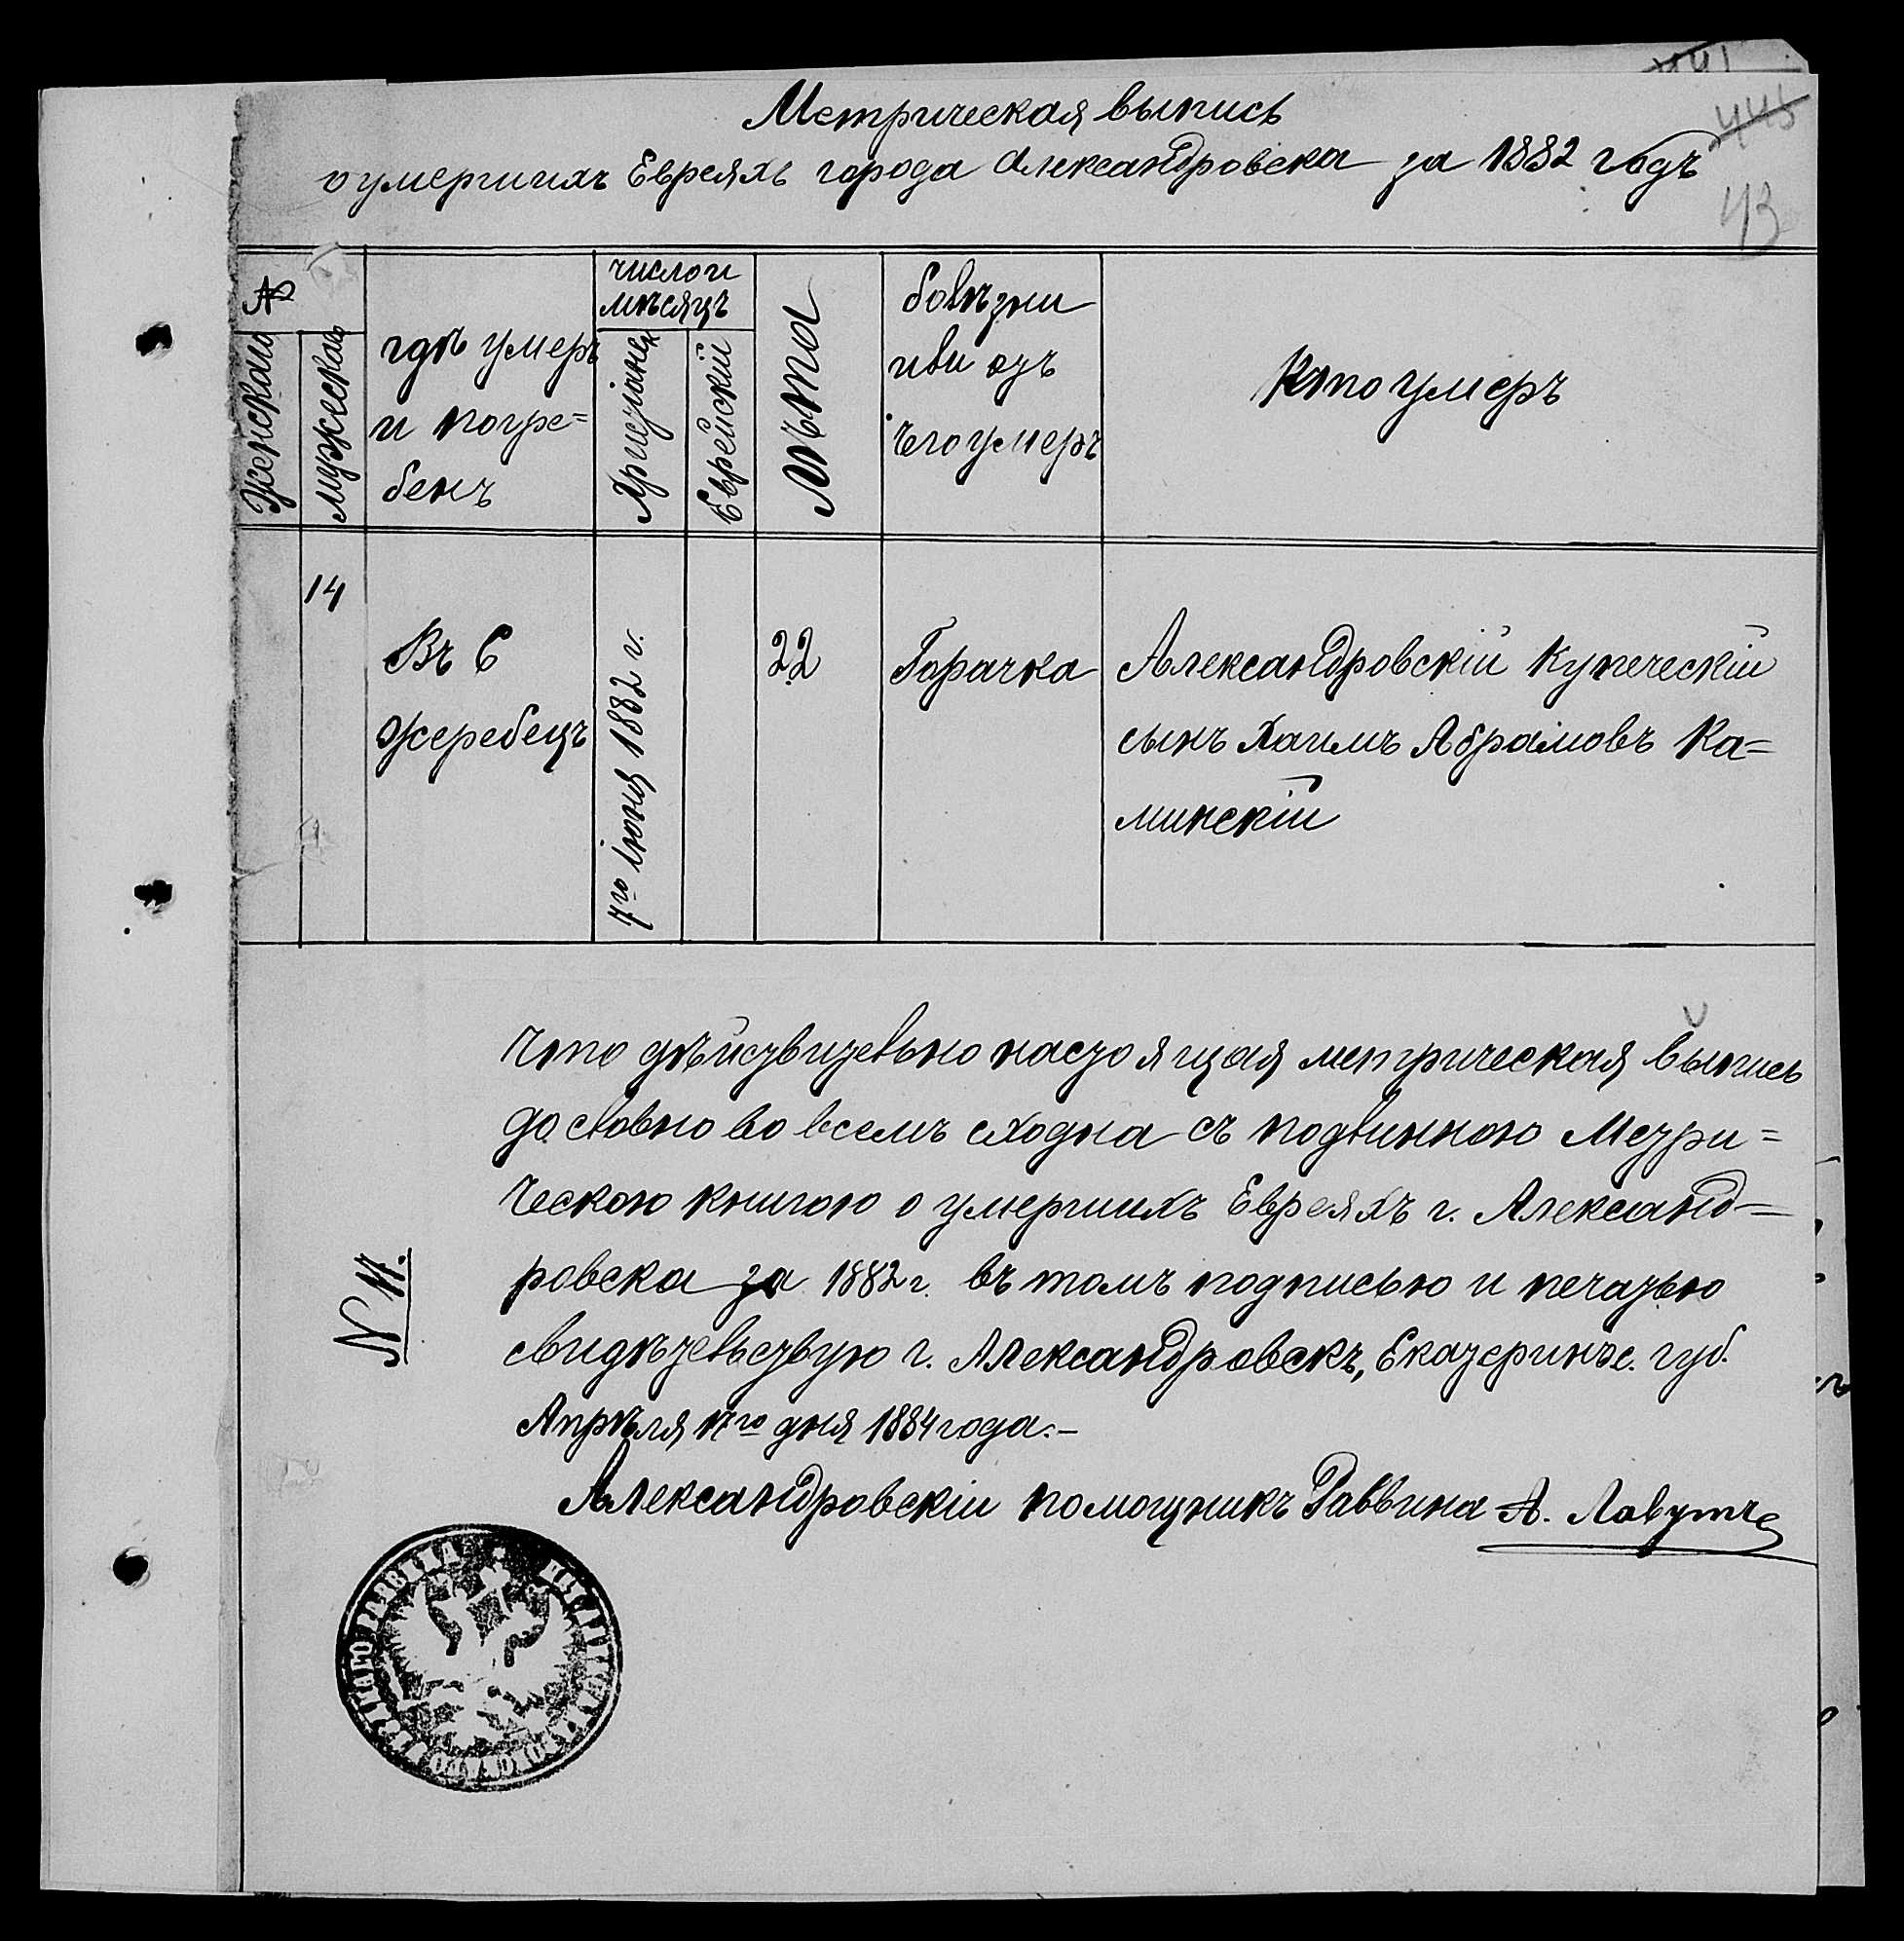 Метрическая выпись
о умершихъ Евреяхъ города Александровска за 1882 годъ
443
43
№
Женская
мужеская
гдѣ умеръ
и погре=
бенъ
число и
мѣсяцъ
Еврейскій
Лѣта
болѣзни
или отъ
чего умеръ
Кто умеръ
14
Въ С
Жеребецъ
7го Іюня 1882 г.
22
Горачка
Александровскій Купеческій
сынъ Хаимъ Абрамовъ Ка=
минскій
Что дѣйствительно настоящая метрическая выпись
дословно во всемъ сходна съ подлинною Метри=
ческою книгою о умершихъ Евреяхъ г. Александ=
ровска за 1882 г. въ томъ подписью и печатью
свидѣтельствую г. Александровскъ, Екатеринъс. губ.
Апрѣля дня 1884 года.-
№ 11.
Александровскій помощникъ Раввина А. Лавутъ
РАВВИНА